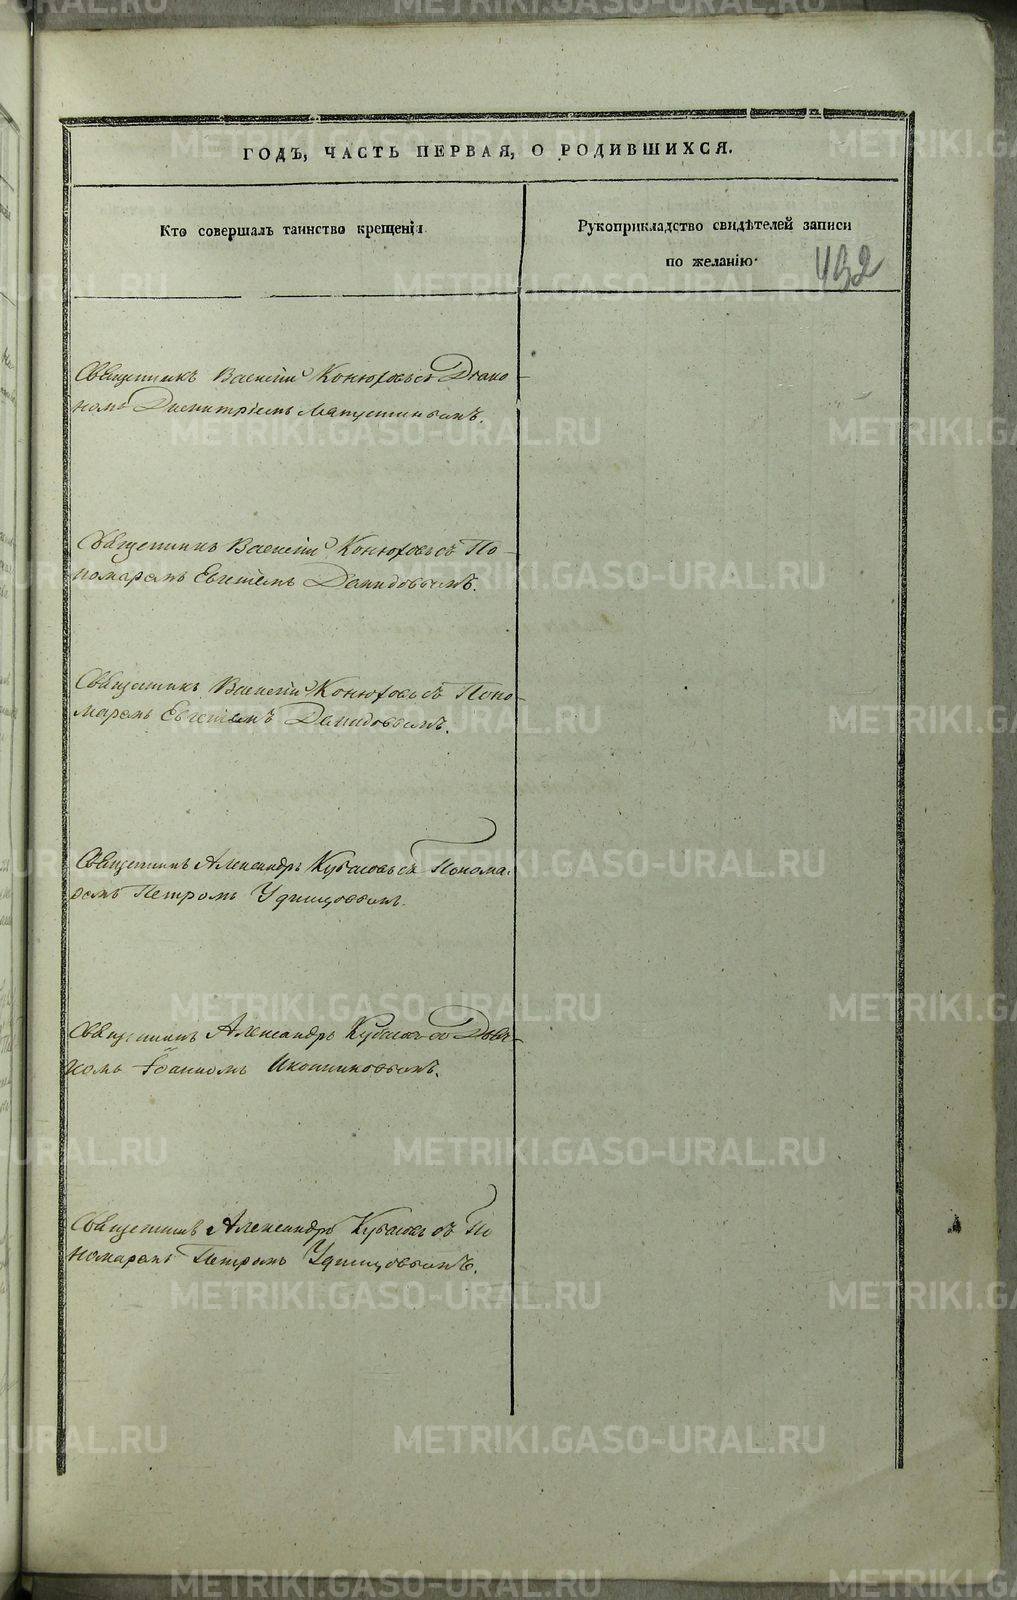 ГОДЪ, ЧАСТЬ ПЕРВАЯ, О РОДИВШИХСЯ.
Кто совершалъ таинство крещенія
Рукоприкладство свидѣтелей записи
по желанію.
432
Священникъ Василій Конюховъ съ Діако-
номъ Димитріемъ Лапустинымъ.
Священникъ Василій Конюховъ съ По-
номаремъ Евгеніемъ Давидовымъ.
Священникъ Василій Конюховъ съ Поно-
маремъ Евгеніемъ Давидовымъ.
Священникъ Александръ Кубасовъ съ Понома-
ремъ Петромъ Удинцовымъ.
Священникъ Александръ Кубасовъ со Дьяч-
комъ Іоанномъ Иконниковымъ.
Священникъ Александръ Кубасовъ съ По
номаремъ Петромъ Удинцовымъ.
METRIKI.GASO-URAL.RU